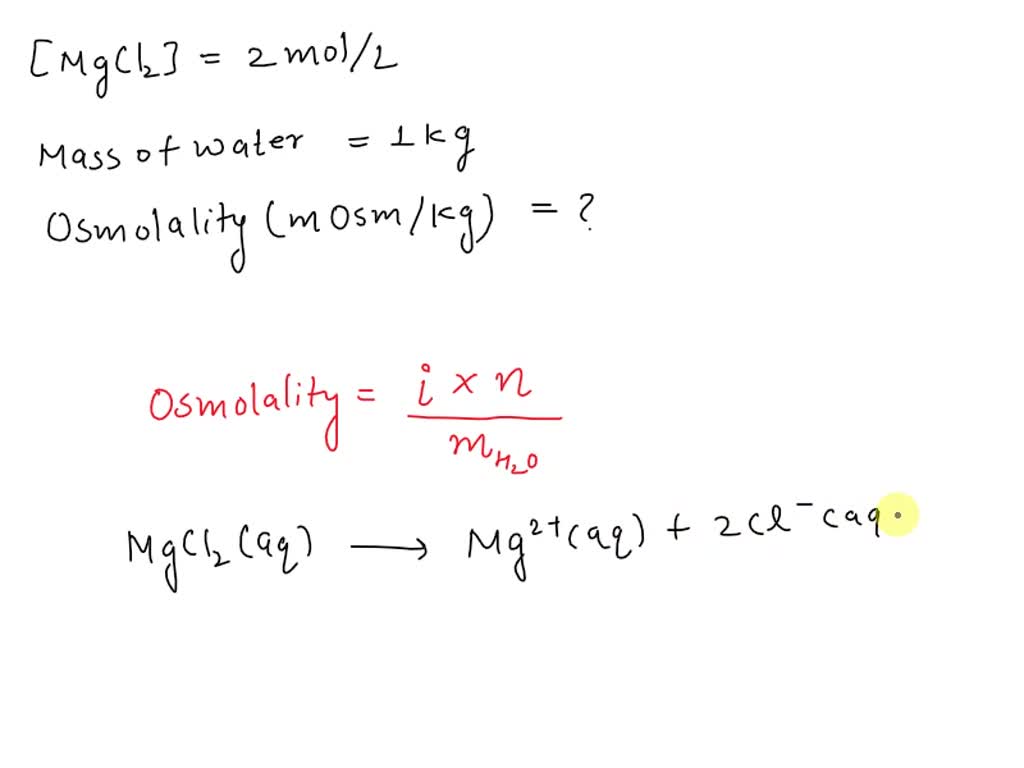 [MgCl₂] = 2 mol/L
Mass of water = 1 kg
Osmolality (mOsm/kg) = ?
Osmolality = i × n
m H₂O
MgCl₂ (aq) ⟶ Mg²⁺ (aq) + 2Cl⁻ (aq